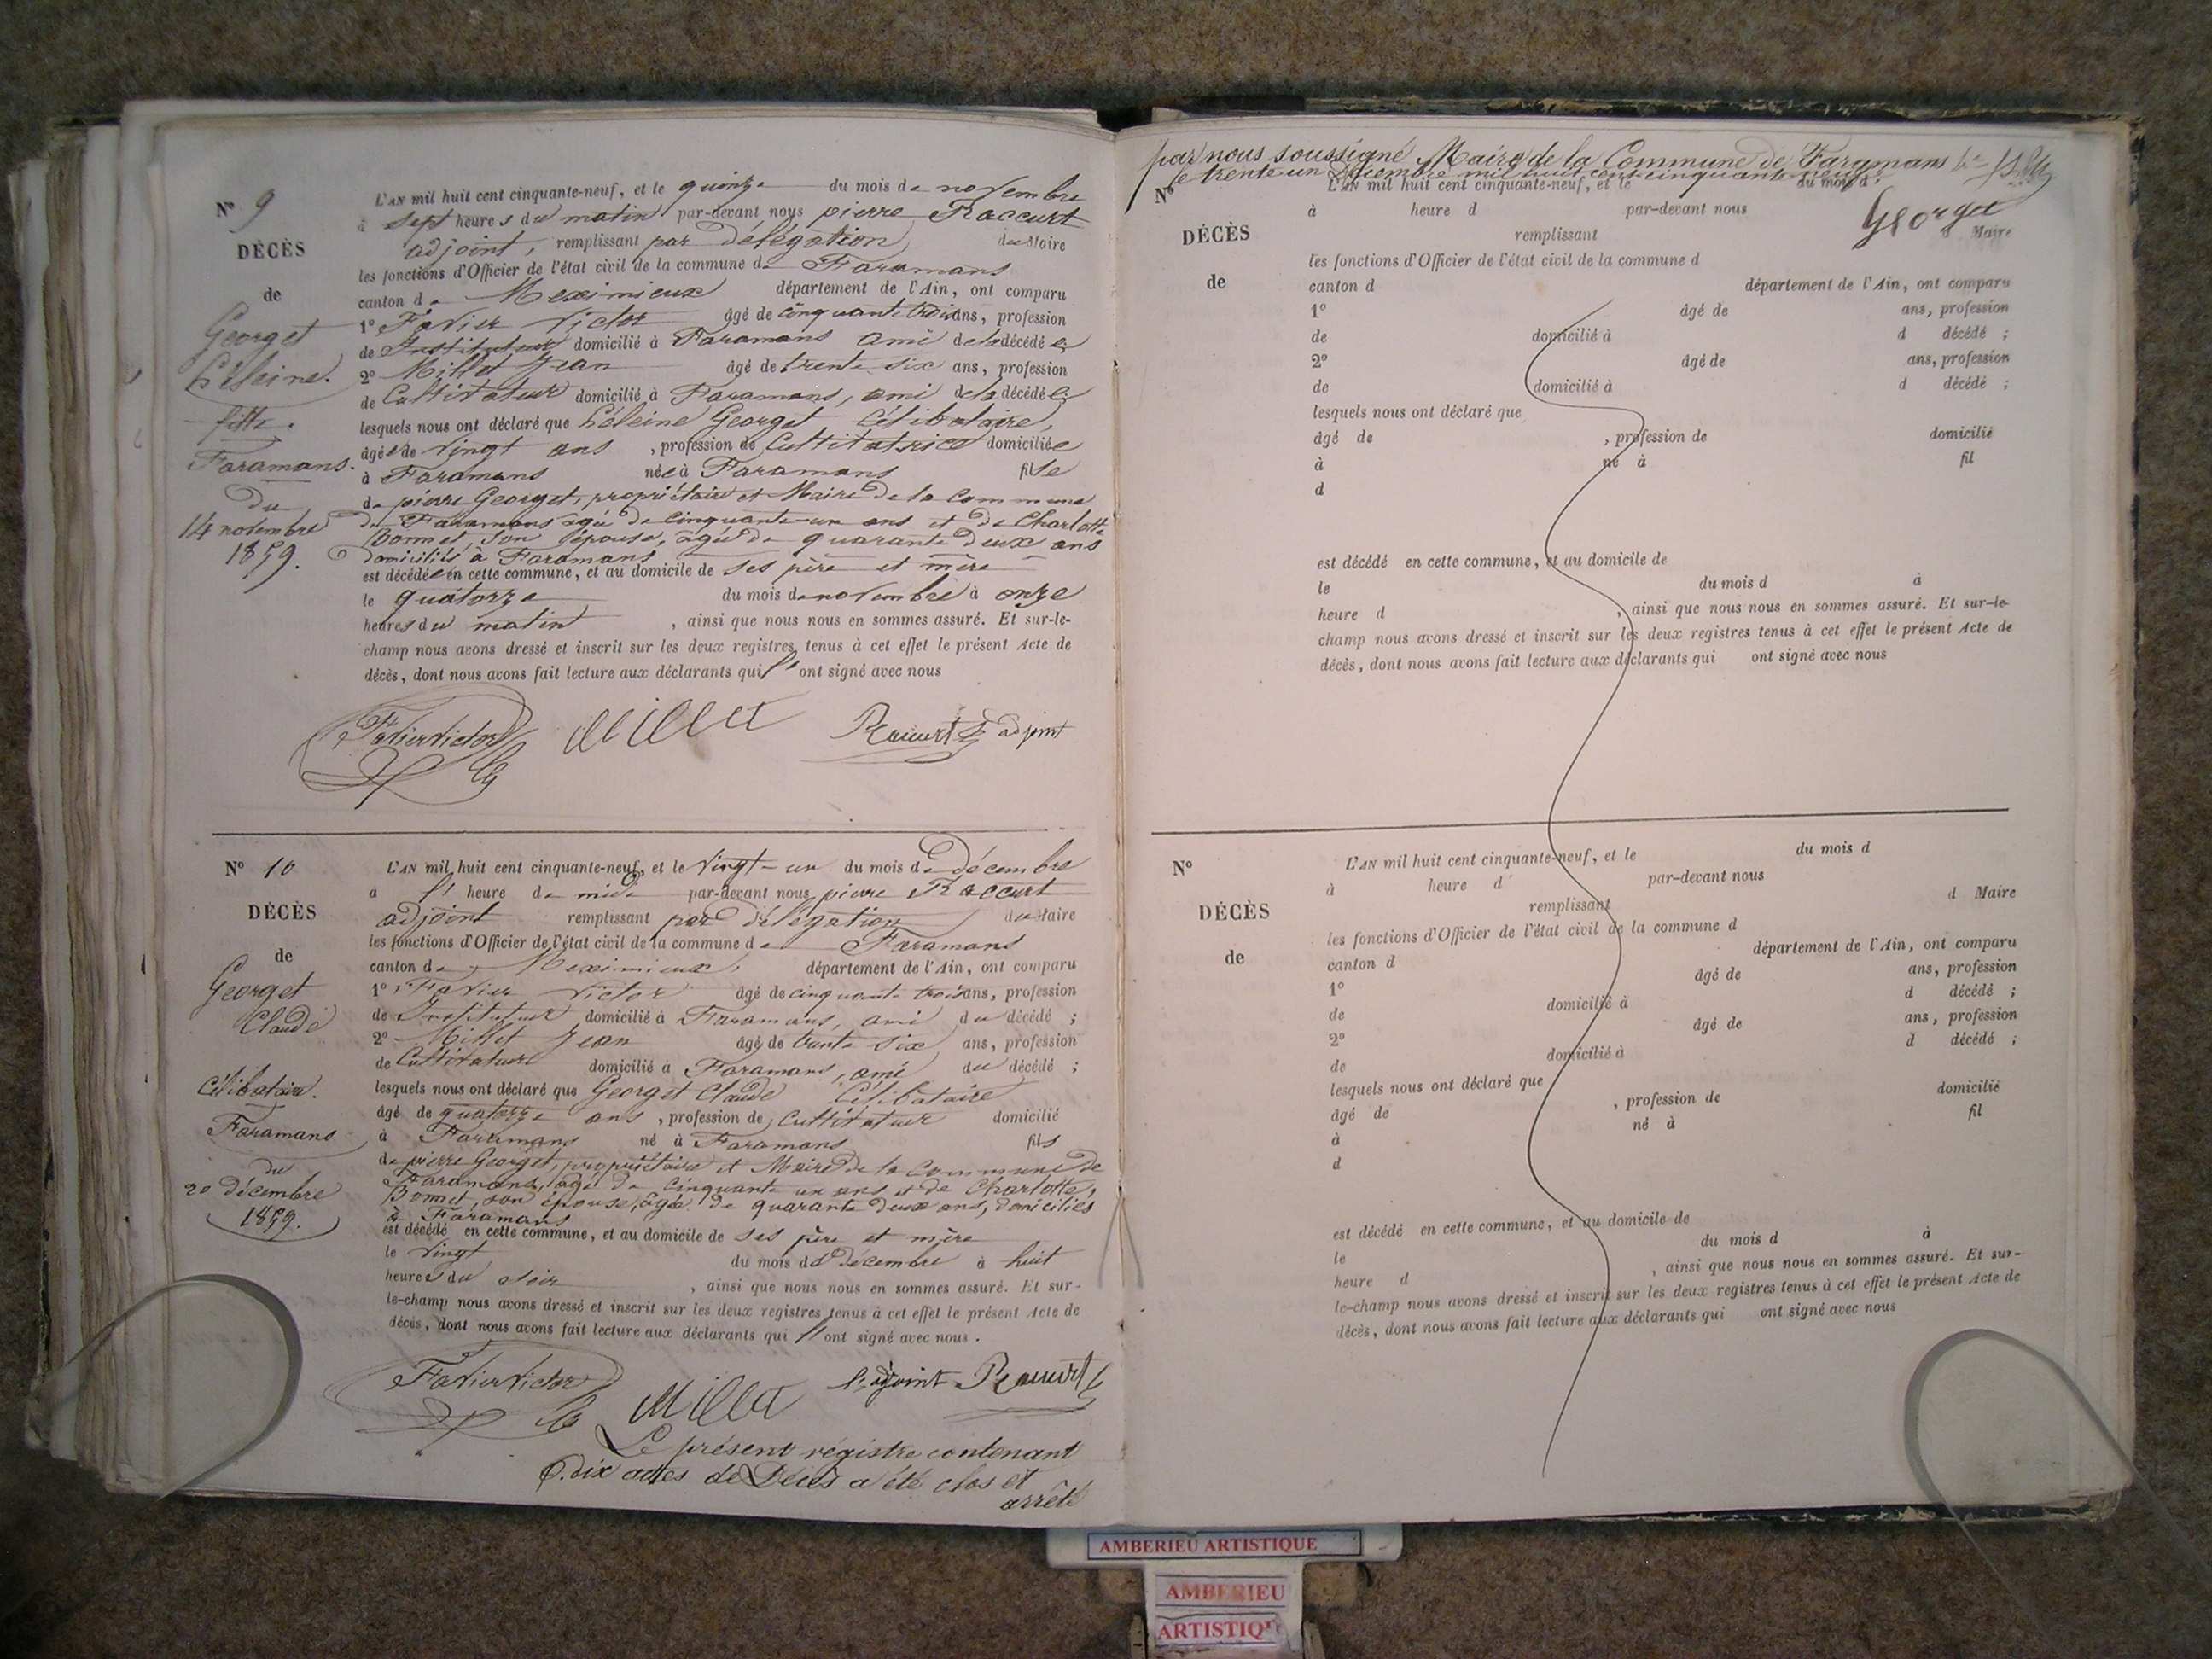 N° 9
DÉCÈS
de
Georget
héleine.
fille.
Faramans.
du
14 novembre
1859.
L'AN mil huit cent cinquante-neuf, et le quinze du mois de novembre
à sept heures du matin par-devant nous pierre Raccurt
adjoint, remplissant par délégation du Maire
les fonctions d'Officier de l'état civil de la commune de Faramans
canton de Meximieux département de l'Ain, ont comparu
1° Favier Victor âgé de cinquante trois ans, profession
de Instituteur domicilié à Faramans ami de la décédée
2° Millet Jean âgé de trente six ans, profession
de Cultivateur domicilié à Faramans, ami de la décédée
lesquels nous ont déclaré que héleine Georget Célibataire,
âgée de vingt ans, profession de Cultivatrice domiciliée
à Faramans née à Faramans fille
de pierre Georget, propriétaire et Maire de la commune
de Faramans âgé de cinquante-un ans et de Charlotte
Bonnet, son épouse, âgée de quarante deux ans
domiciliés à Faramans
est décédée en cette commune, et au domicile de ses père et mère
le quatorze du mois de novembre à onze
heures du matin, ainsi que nous nous en sommes assuré. Et sur-le-
champ nous avons dressé et inscrit sur les deux registres tenus à cet effet le présent Acte de
décès, dont nous avons fait lecture aux déclarants qui l' ont signé avec nous
Favier Victor Millet Raccurt adjoint
N° 10
DÉCÈS
de
Georget
Claude
Célibataire.
Faramans
du
20 décembre
1859.
L'AN mil huit cent cinquante-neuf, et le vingt-un du mois de décembre
à l' heure de midi par-devant nous pierre Raccurt
adjoint remplissant par délégation du Maire
les fonctions d'Officier de l'état civil de la commune de Faramans
canton de Meximieux, département de l'Ain, ont comparu
1° Favier Victor âgé de cinquante trois ans, profession
de Instituteur domicilié à Faramans, ami du décédé ;
2° Millet Jean âgé de trente six ans, profession
de Cultivateur domicilié à Faramans, ami du décédé ;
lesquels nous ont déclaré que Georget Claude Célibataire
âgé de quatorze ans, profession de Cultivateur domicilié
à Faramans né à Faramans fils
de pierre Georget, propriétaire et Maire de la commune de
Faramans, âgé de cinquante un ans et de Charlotte,
Bonnet, son épouse, âgée de quarante deux ans, domiciliés
à Faramans
est décédé en cette commune, et au domicile de ses père et mère
le vingt du mois de décembre à huit
heures du soir, ainsi que nous nous en sommes assuré. Et sur-
le-champ nous avons dressé et inscrit sur les deux registres tenus à cet effet le présent Acte de
décès, dont nous avons fait lecture aux déclarants qui l' ont signé avec nous.
Favier Victor Millet l'adjoint Raccurt
Le présent régistre contenant
dix actes de Décès a été clos et
arrêté
par nous soussigné Maire de la Commune de Faramans
le trente-un Décembre mil huit cent cinquante neuf.
Georget
N°
DÉCÈS
de
L'AN mil huit cent cinquante-neuf, et le du mois d
à heure d par-devant nous
remplissant d Maire
les fonctions d'Officier de l'état civil de la commune d
canton d département de l'Ain, ont comparu
1° âgé de ans, profession
de domicilié à d décédé ;
2° âgé de ans, profession
de domicilié à d décédé ;
lesquels nous ont déclaré que
âgé de , profession de domicilié
à né à fil
d
est décédé en cette commune, et au domicile de
le du mois d à
heure d , ainsi que nous nous en sommes assuré. Et sur-le-
champ nous avons dressé et inscrit sur les deux registres tenus à cet effet le présent Acte de
décès, dont nous avons fait lecture aux déclarants qui ont signé avec nous
N°
DÉCÈS
de
L'AN mil huit cent cinquante-neuf, et le du mois d
à heure d par-devant nous
remplissant d Maire
les fonctions d'Officier de l'état civil de la commune d
canton d département de l'Ain, ont comparu
1° âgé de ans, profession
de domicilié à d décédé ;
2° âgé de ans, profession
de domicilié à d décédé ;
lesquels nous ont déclaré que
âgé de , profession de domicilié
à né à fil
d
est décédé en cette commune, et au domicile de
le du mois d à
heure d , ainsi que nous nous en sommes assuré. Et sur-
le-champ nous avons dressé et inscrit sur les deux registres tenus à cet effet le présent Acte de
décès, dont nous avons fait lecture aux déclarants qui ont signé avec nous
AMBERIEU ARTISTIQUE
AMBERIEU
ARTISTIQU